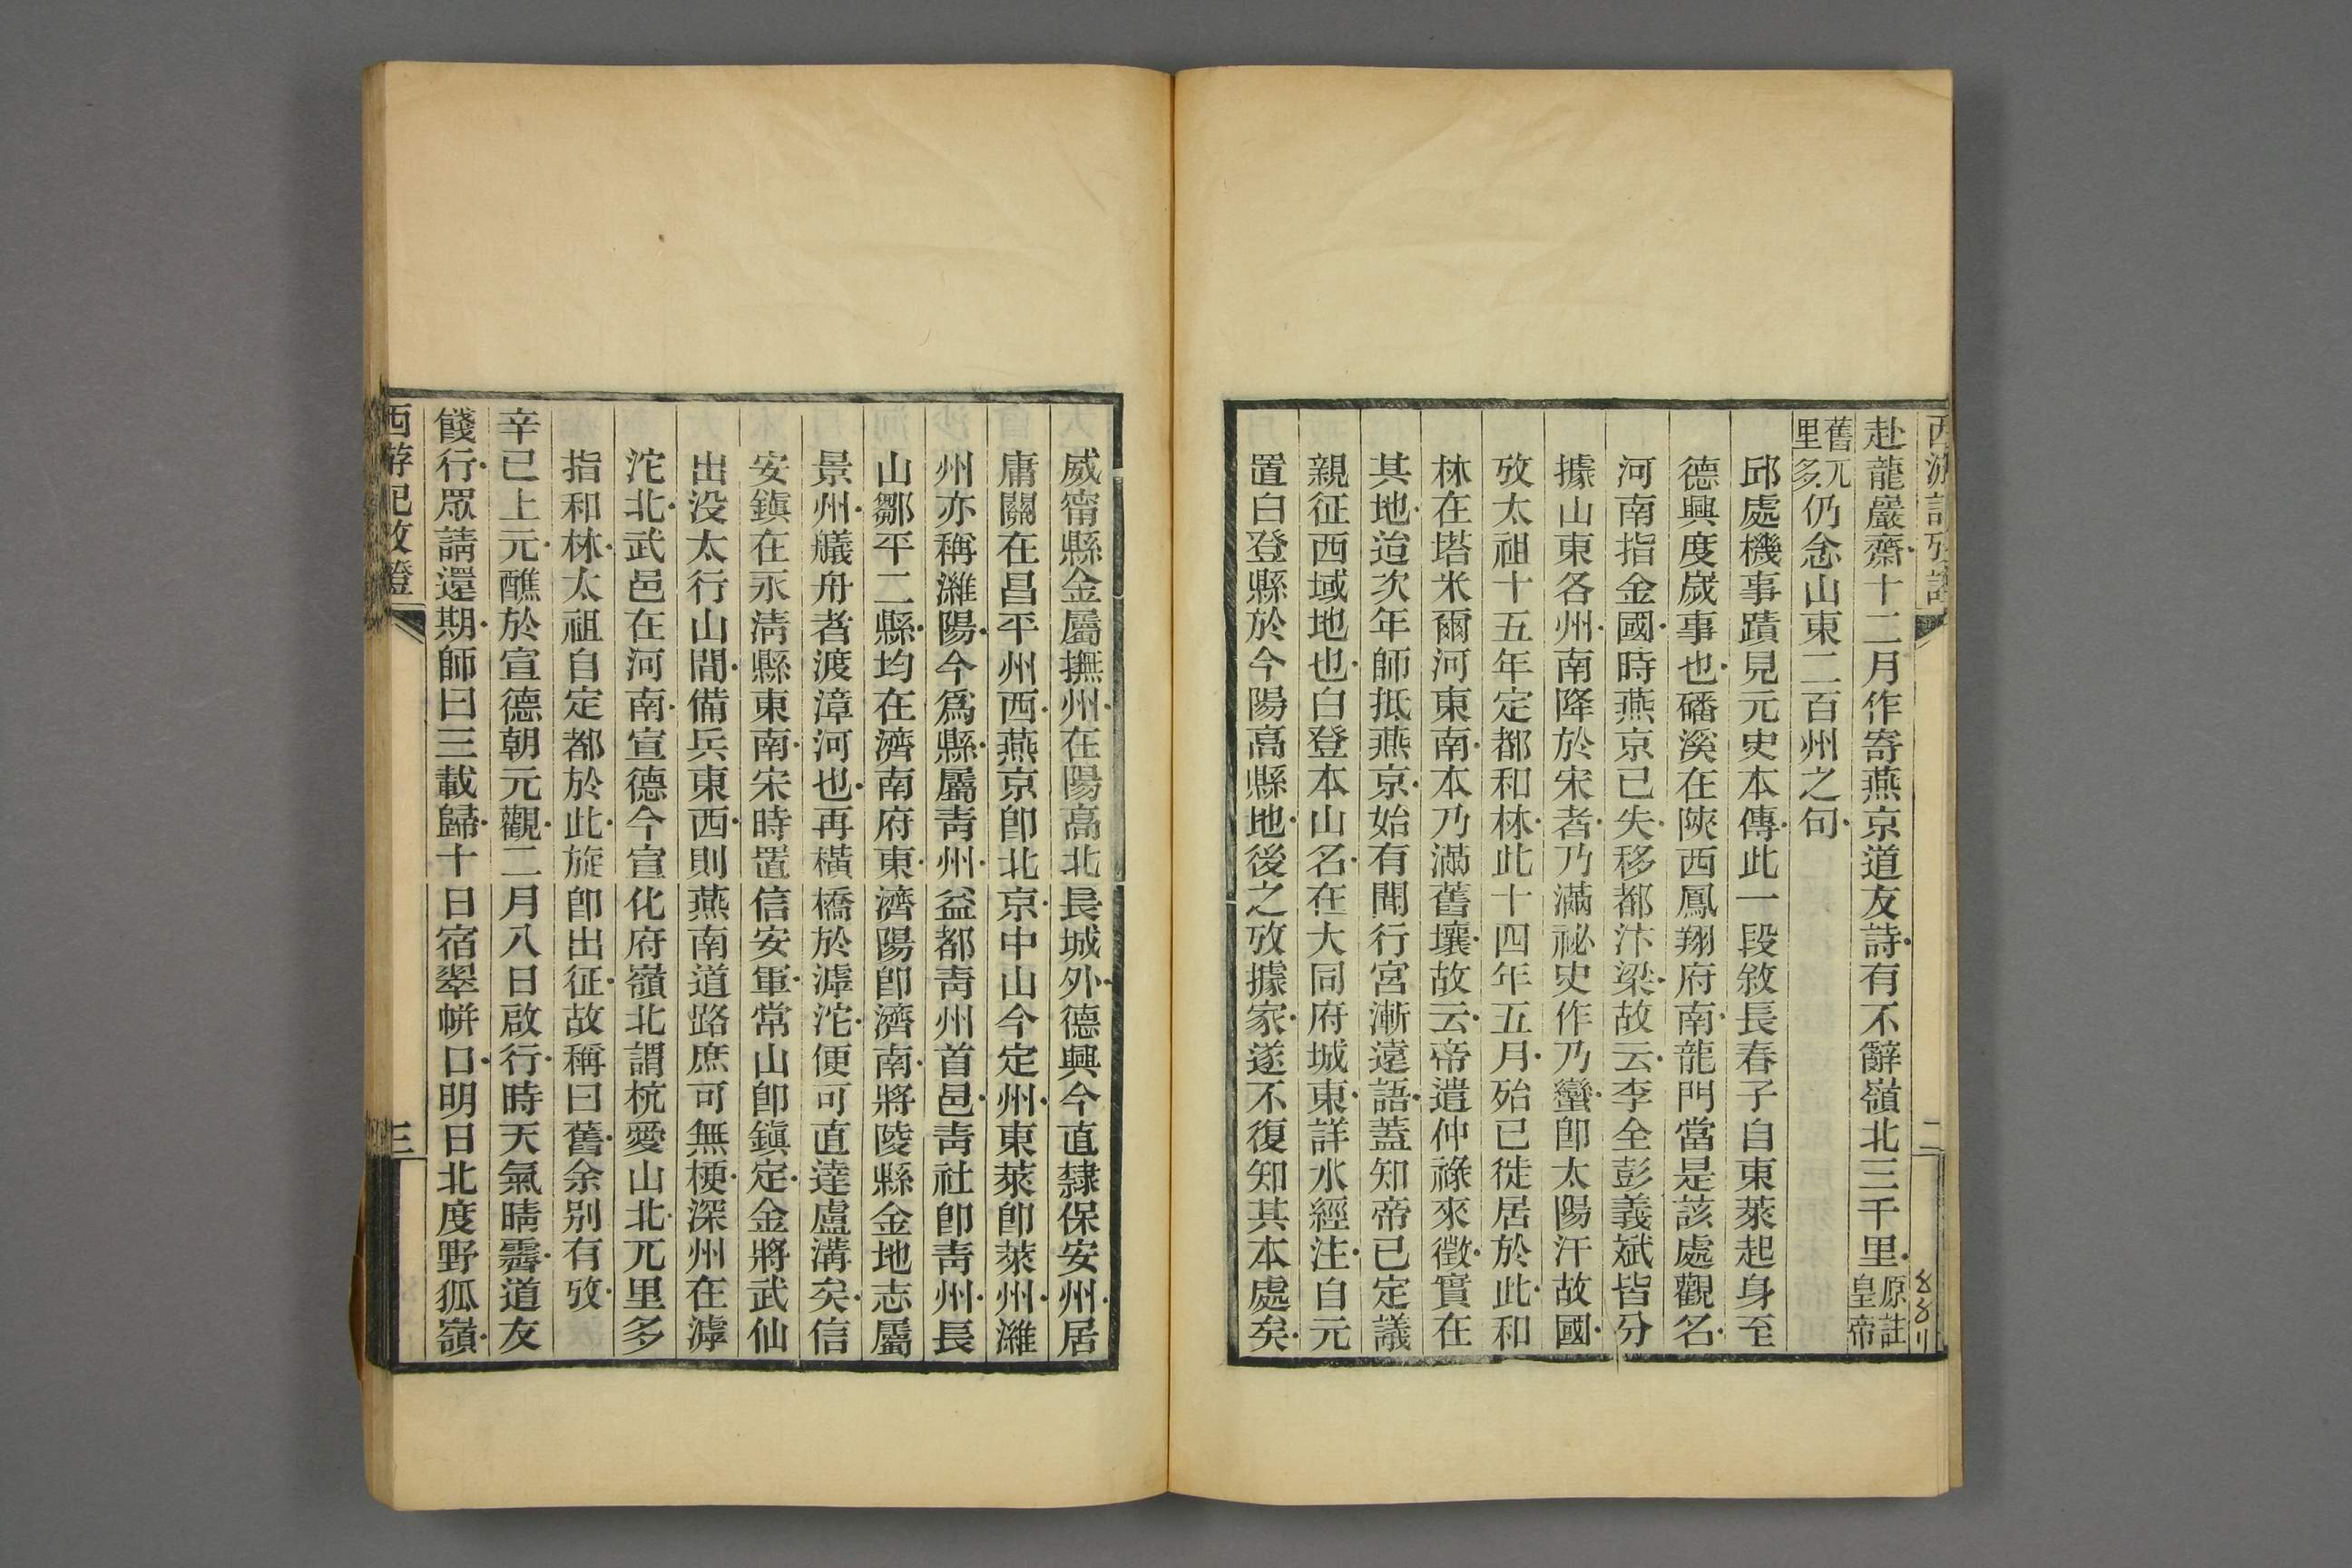 西游記攷證
二
赴龍巖齋十二月作寄燕京道友詩有不辭嶺北三千里原註皇帝
舊兀里多仍念山東二百州之句
邱處機事蹟見元史本傳此一段敘長春子自東萊起身至
德興度歲事也磻溪在陝西鳳翔府南龍門當是該處觀名
河南指金國時燕京已失移都汴梁故云李全彭義斌皆分
據山東各州南降於宋者乃滿祕史作乃蠻卽太陽汗故國
攷太祖十五年定都和林此十四年五月殆已徙居於此和
林在塔米爾河東南本乃滿舊壤故云帝遣仲祿來徵實在
其地迨次年師抵燕京始有聞行宮漸遠語蓋知帝已定議
親征西域地也白登本山名在大同府城東詳水經注自元
置白登縣於今陽高縣地後之攷據家遂不復知其本處矣
威甯縣金屬撫州在陽高北長城外德興今直隸保安州居
庸關在昌平州西燕京卽北京中山今定州東萊卽萊州濰
州亦稱濰陽今爲縣屬靑州益都靑州首邑靑社卽靑州長
山鄒平二縣均在濟南府東濟陽卽濟南將陵縣金地志屬
景州艤舟者渡漳河也再橫橋於滹沱便可直達盧溝矣信
安鎭在永淸縣東南宋時置信安軍常山卽鎭定金將武仙
出没太行山間備兵東西則燕南道路庶可無梗深州在滹
沱北武邑在河南宣德今宣化府嶺北謂杭愛山北兀里多
指和林太祖自定都於此旋卽出征故稱曰舊余别有攷
辛已上元醮於宣德朝元觀二月八日啟行時天氣晴霽道友
餞行眾請還期師曰三載歸十日宿翠帡口明日北度野狐嶺
西游記攷證
三